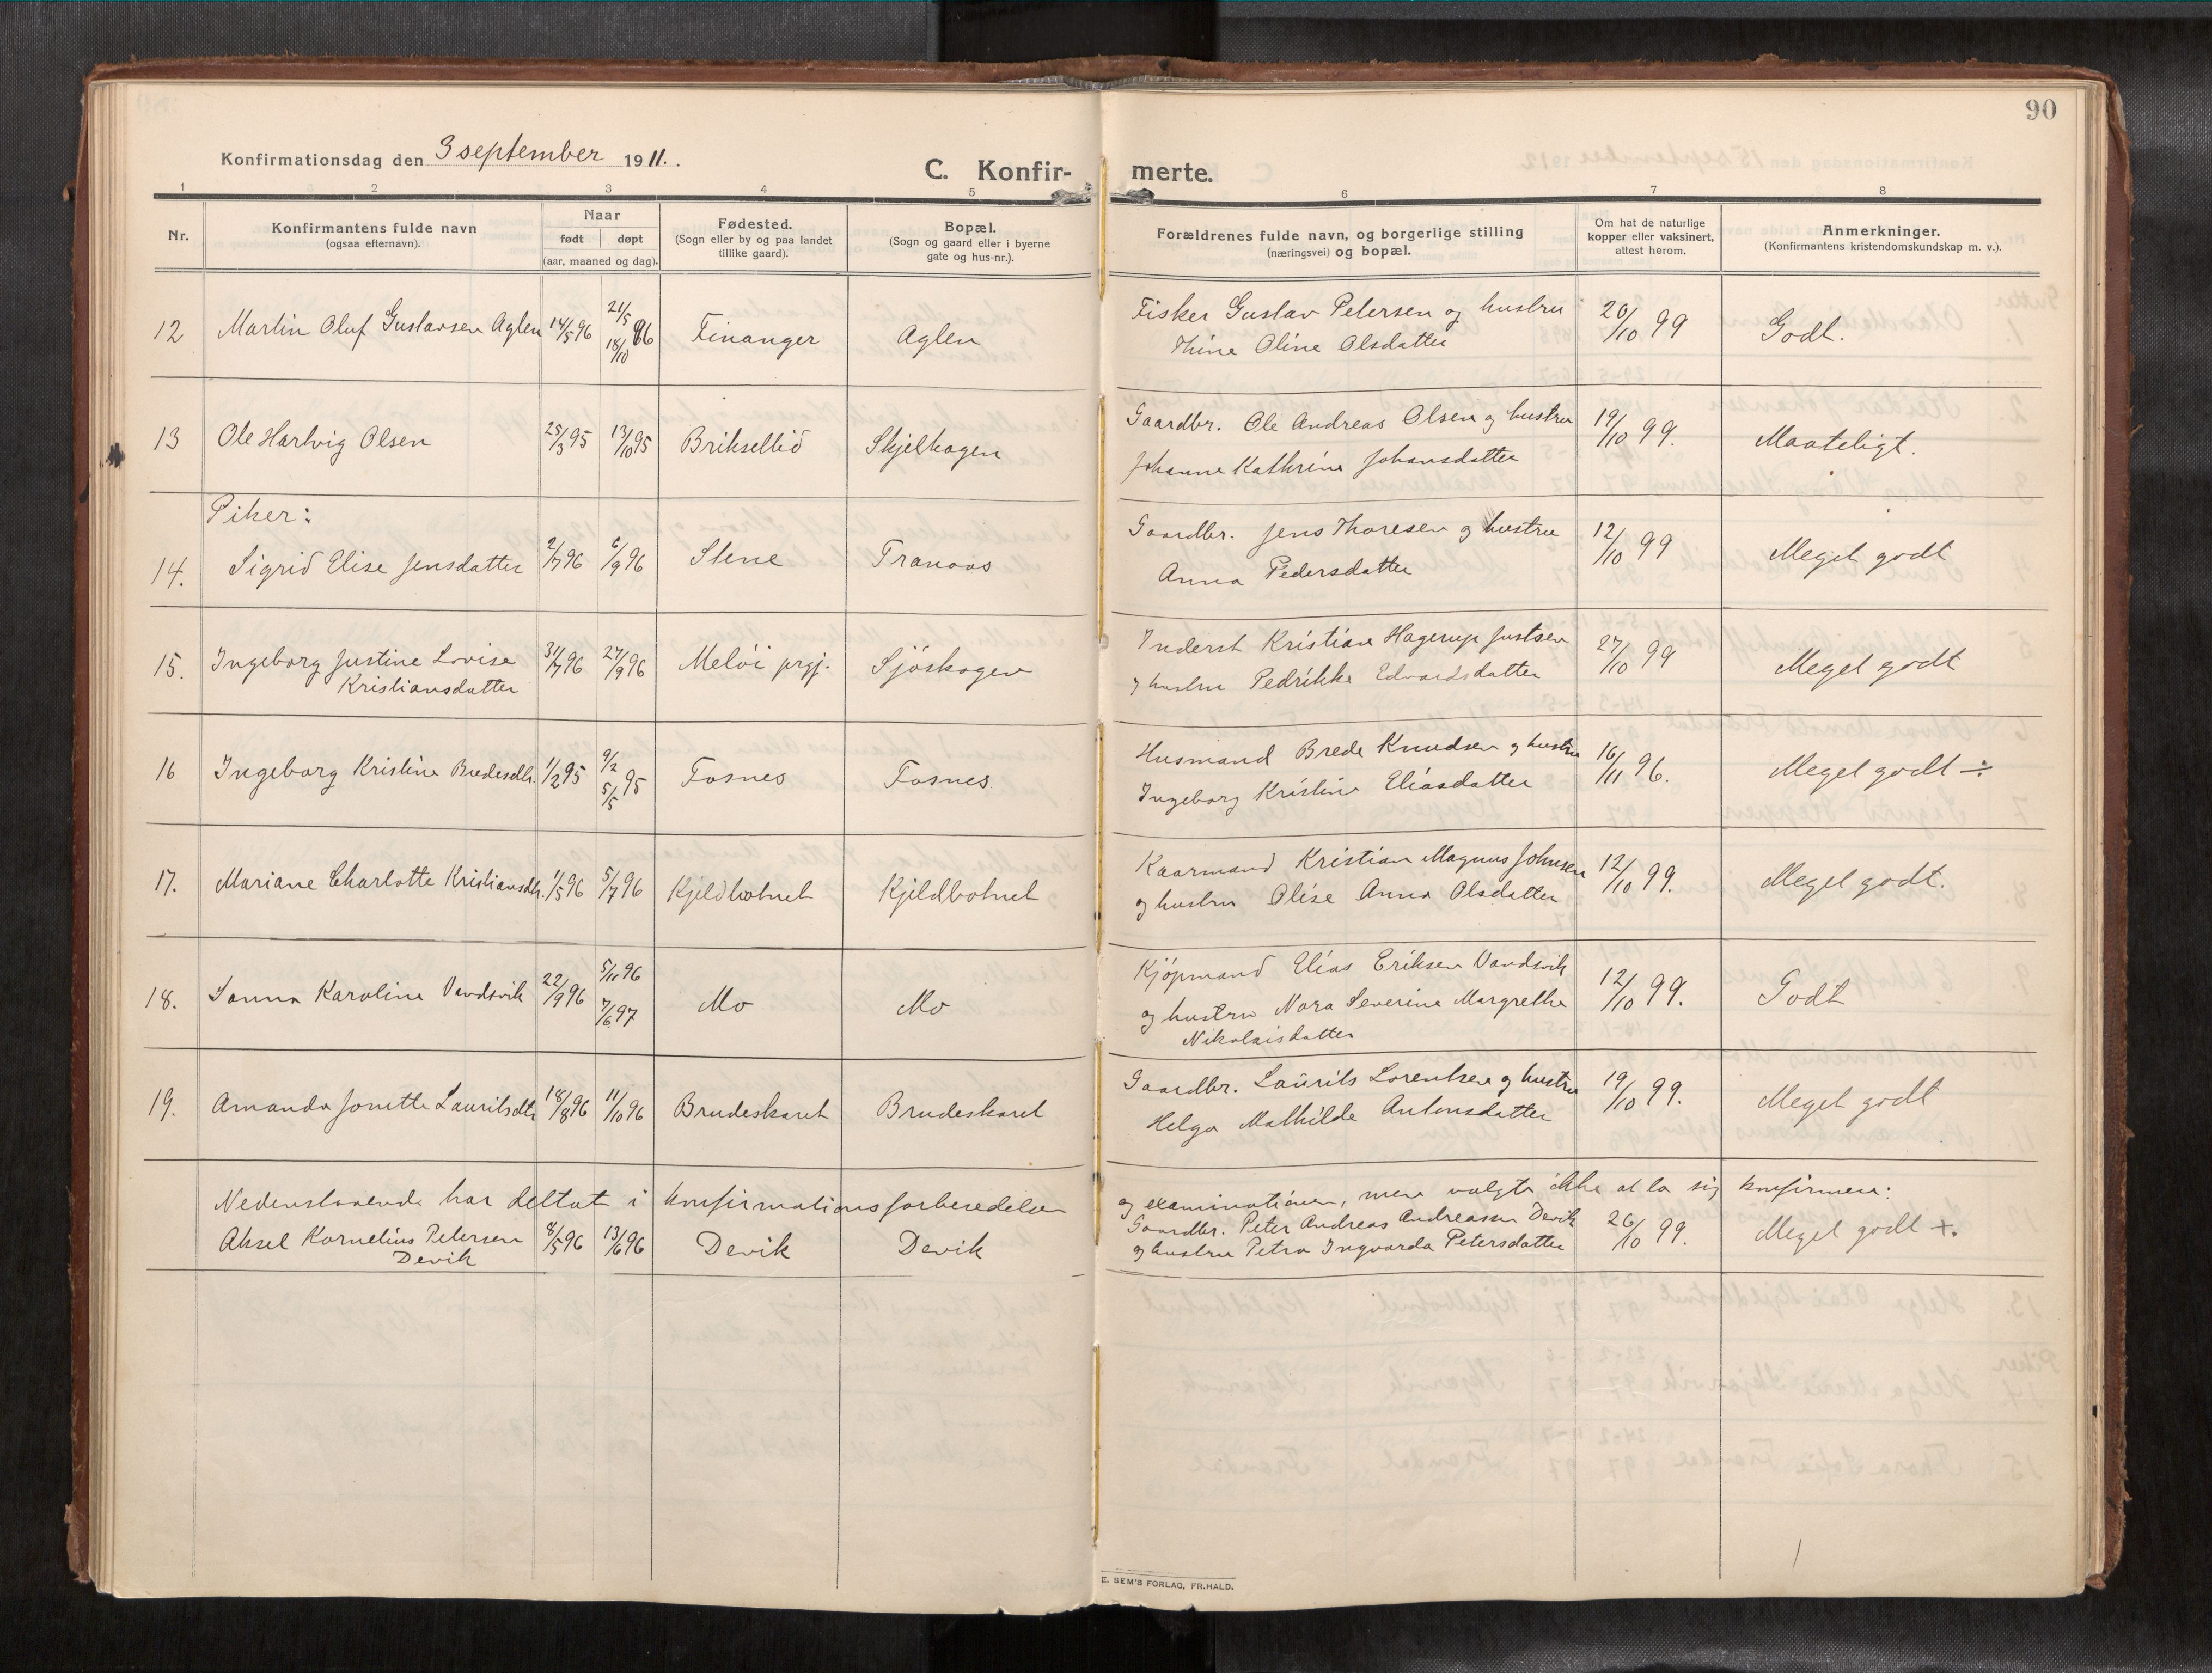 90
Konfirmationsdag den 3 september 1911.
C. Konfir- merte.
1 2 3 4 5 6 7 8
Nr.
Konfirmantens fulde navn
(ogsaa efternavn).
Naar
født døpt
(aar, maaned og dag).
Fødested.
(Sogn eller by og paa landet
tillike gaard).
Bopæl.
(Sogn og gaard eller i byerne
gate og hus-nr.).
Forældrenes fulde navn, og borgerlige stilling
(næringsvei) og bopæl.
Om hat de naturlige
kopper eller vaksinert,
attest herom.
Anmerkninger.
(Konfirmantens kristendomskundskap m. v.).
12 Martin Oluf Gustavsen Aglen 14/5 96 21/5 18/10 96 Finanger Aglen Fisker Gustav Petersen og hustru 20/10 99 Godt.
Thine Oline Olsdatter
13 Ole Hartvig Olsen 25/3 95 13/10 95 Brikselliö Skjelhagen Gaardbr. Ole Andreas Olsen og hustru 19/10 99. Maateligt.
Johanne Kathrine Johansdatter
Piker:
14. Sigrid Elise Jensdatter 2/7 96 6/9 96 Slene Tranaas Gaardbr. Jens Thoresen og hustru 12/10 99 Meget godt
Anna Pedersdatter
15. Ingeborg Justine Lovise 31/7 96 27/9 96 Melöi prgj. Sjöskogen Inderst Kristian Hagerup Justsen 27/10 99 Meget godt
Kristiansdatter og hustru Pedrikke Edvardsdatter
16 Ingeborg Kristine Bredesdtr. 1/2 95 9/2 5/5 95 Fosnes Fosnes. Husmand Brede Knudsen og hustru 16/11 96. Meget godt ÷
Ingeborg Kristine Eliasdatter
17. Mariane Charlotte Kristiansdtr. 1/5 96 5/7 96 Kjeldbotnet Kjeldbotnet Kaarmand Kristian Magnus Johnsen 12/10 99. Meget godt.
og hustru Olise Anna Olsdatter
18. Sanna Karoline Vandsvik 22/9 96 5/11 96 7/6 97 Mo Mo Kjöpmand Elias Eriksen Vandsvik 12/10 99. Godt
og hustru Nora Severine Margrethe
Nikolaisdatter
19. Amanda Jonette Lauritsdtr 18/8 96 11/10 96 Brudeskaret Brudeskaret Gaardbr. Laurits Lorentsen og hustru 19/10 99. Meget godt
Helga Mathilde Antonsdatter
Nedenstaaende har deltat i konfirmationsforberedelsen og examinationen, men valgte ikke at la sig konfirmere:
Aksel Kornelius Petersen 8/5 96 13/6 96 Devik Devik Gaardbr. Peter Andreas Andreassen Devik 26/10 99. Meget godt +.
Devik og hustru Petra Ingvarda Petersdatter
E. SEM'S FORLAG, FR.HALD.